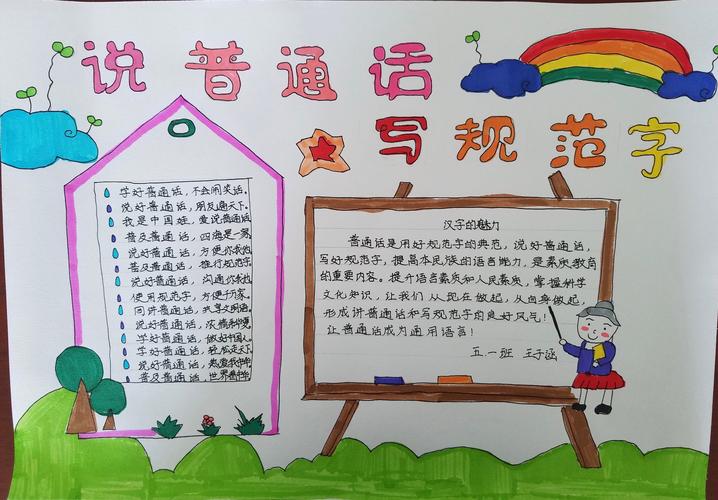 说普通话
写规范字
学好普通话，不会闹笑话。
说好普通话，朋友遍天下。
我是中国娃，爱说普通话
普及普通话，四海是一家。
说好普通话，方便你我他
普及普通话，推行规范字
说好普通话，沟通你我他
使用规范字，方便千万家。
同讲普通话，共享文明语。
说好普通话，
学好普通话，做好中国人。
学好普通话，轻松走天下
说好普通话，
普及普通话，世界
汉字的魅力
普通话是用好规范字的典范，说好普通话，
写好规范字，提高本民族的语言能力，是素质教育
的重要内容。提升语言素质和人民素质，掌握科学
文化知识，让我们从现在做起，从自身做起，
形成讲普通话和写规范字的良好风气！
让普通话成为通用语言！
五.一班 王子涵